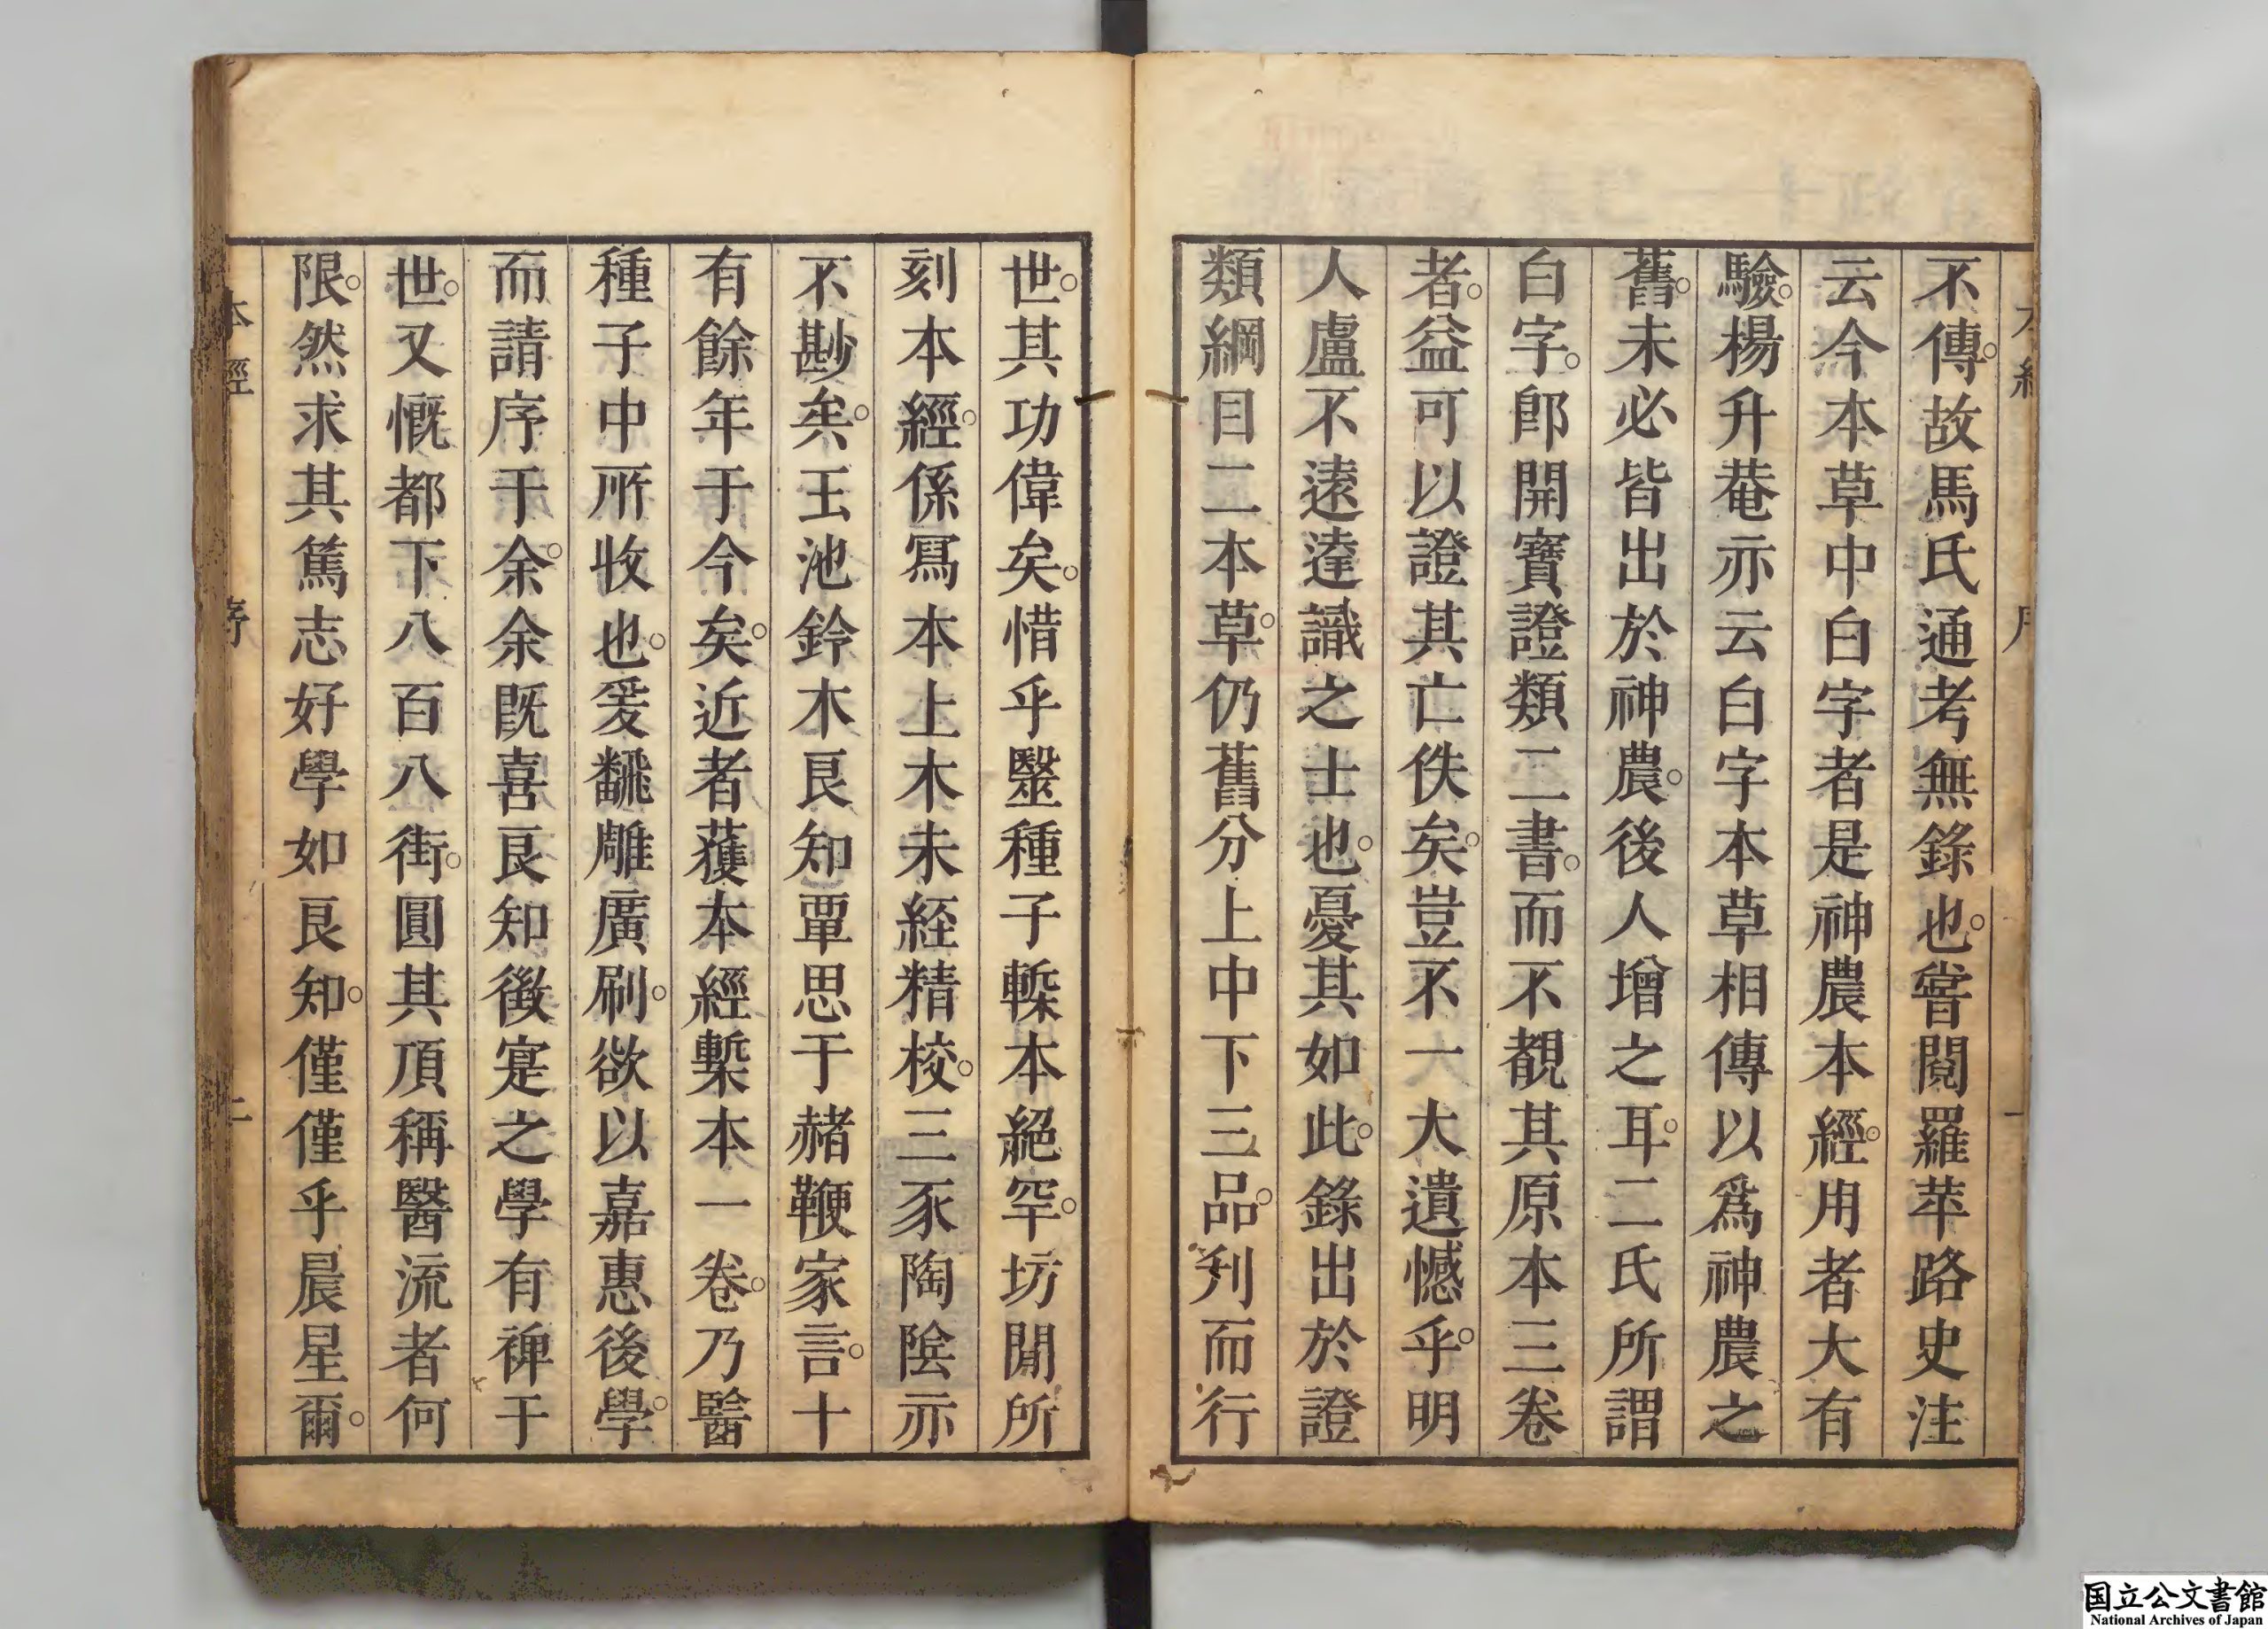 不傳。故馬氏通考無錄也。嘗閱羅苹路史注
云今本草中白字者是神農本經。用者大有
驗。楊升菴亦云白字本草相傳以爲神農之
舊。未必皆出於神農。後人增之耳。二氏所謂
白字。卽開寶證類二書。而不覩其原本三卷
者。益可以證其亡佚矣。豈不一大遺憾乎。明
人盧不遠達識之士也。憂其如此。錄出於證
類綱目二本草。仍舊分上中下三品。列而行
世。其功偉矣。惜乎毉種子槧本絕罕。坊閒所
刻本經。係寫本上木未経精校。三豕陶陰亦
不尠矣。王池鈴木良知覃思于赭鞭家言。十
有餘年于今矣。近者獲本經槧本一卷。乃醫
種子中所收也。爰飜雕廣刷。欲以嘉惠後學。
而請序于余。余旣喜良知徵寔之學有裨于
世。又慨都下八百八街。圓其頂稱醫流者何
限。然求其篤志好學如良知。僅僅乎晨星爾。
本經 序 二
国立公文書館
National Archives of Japan